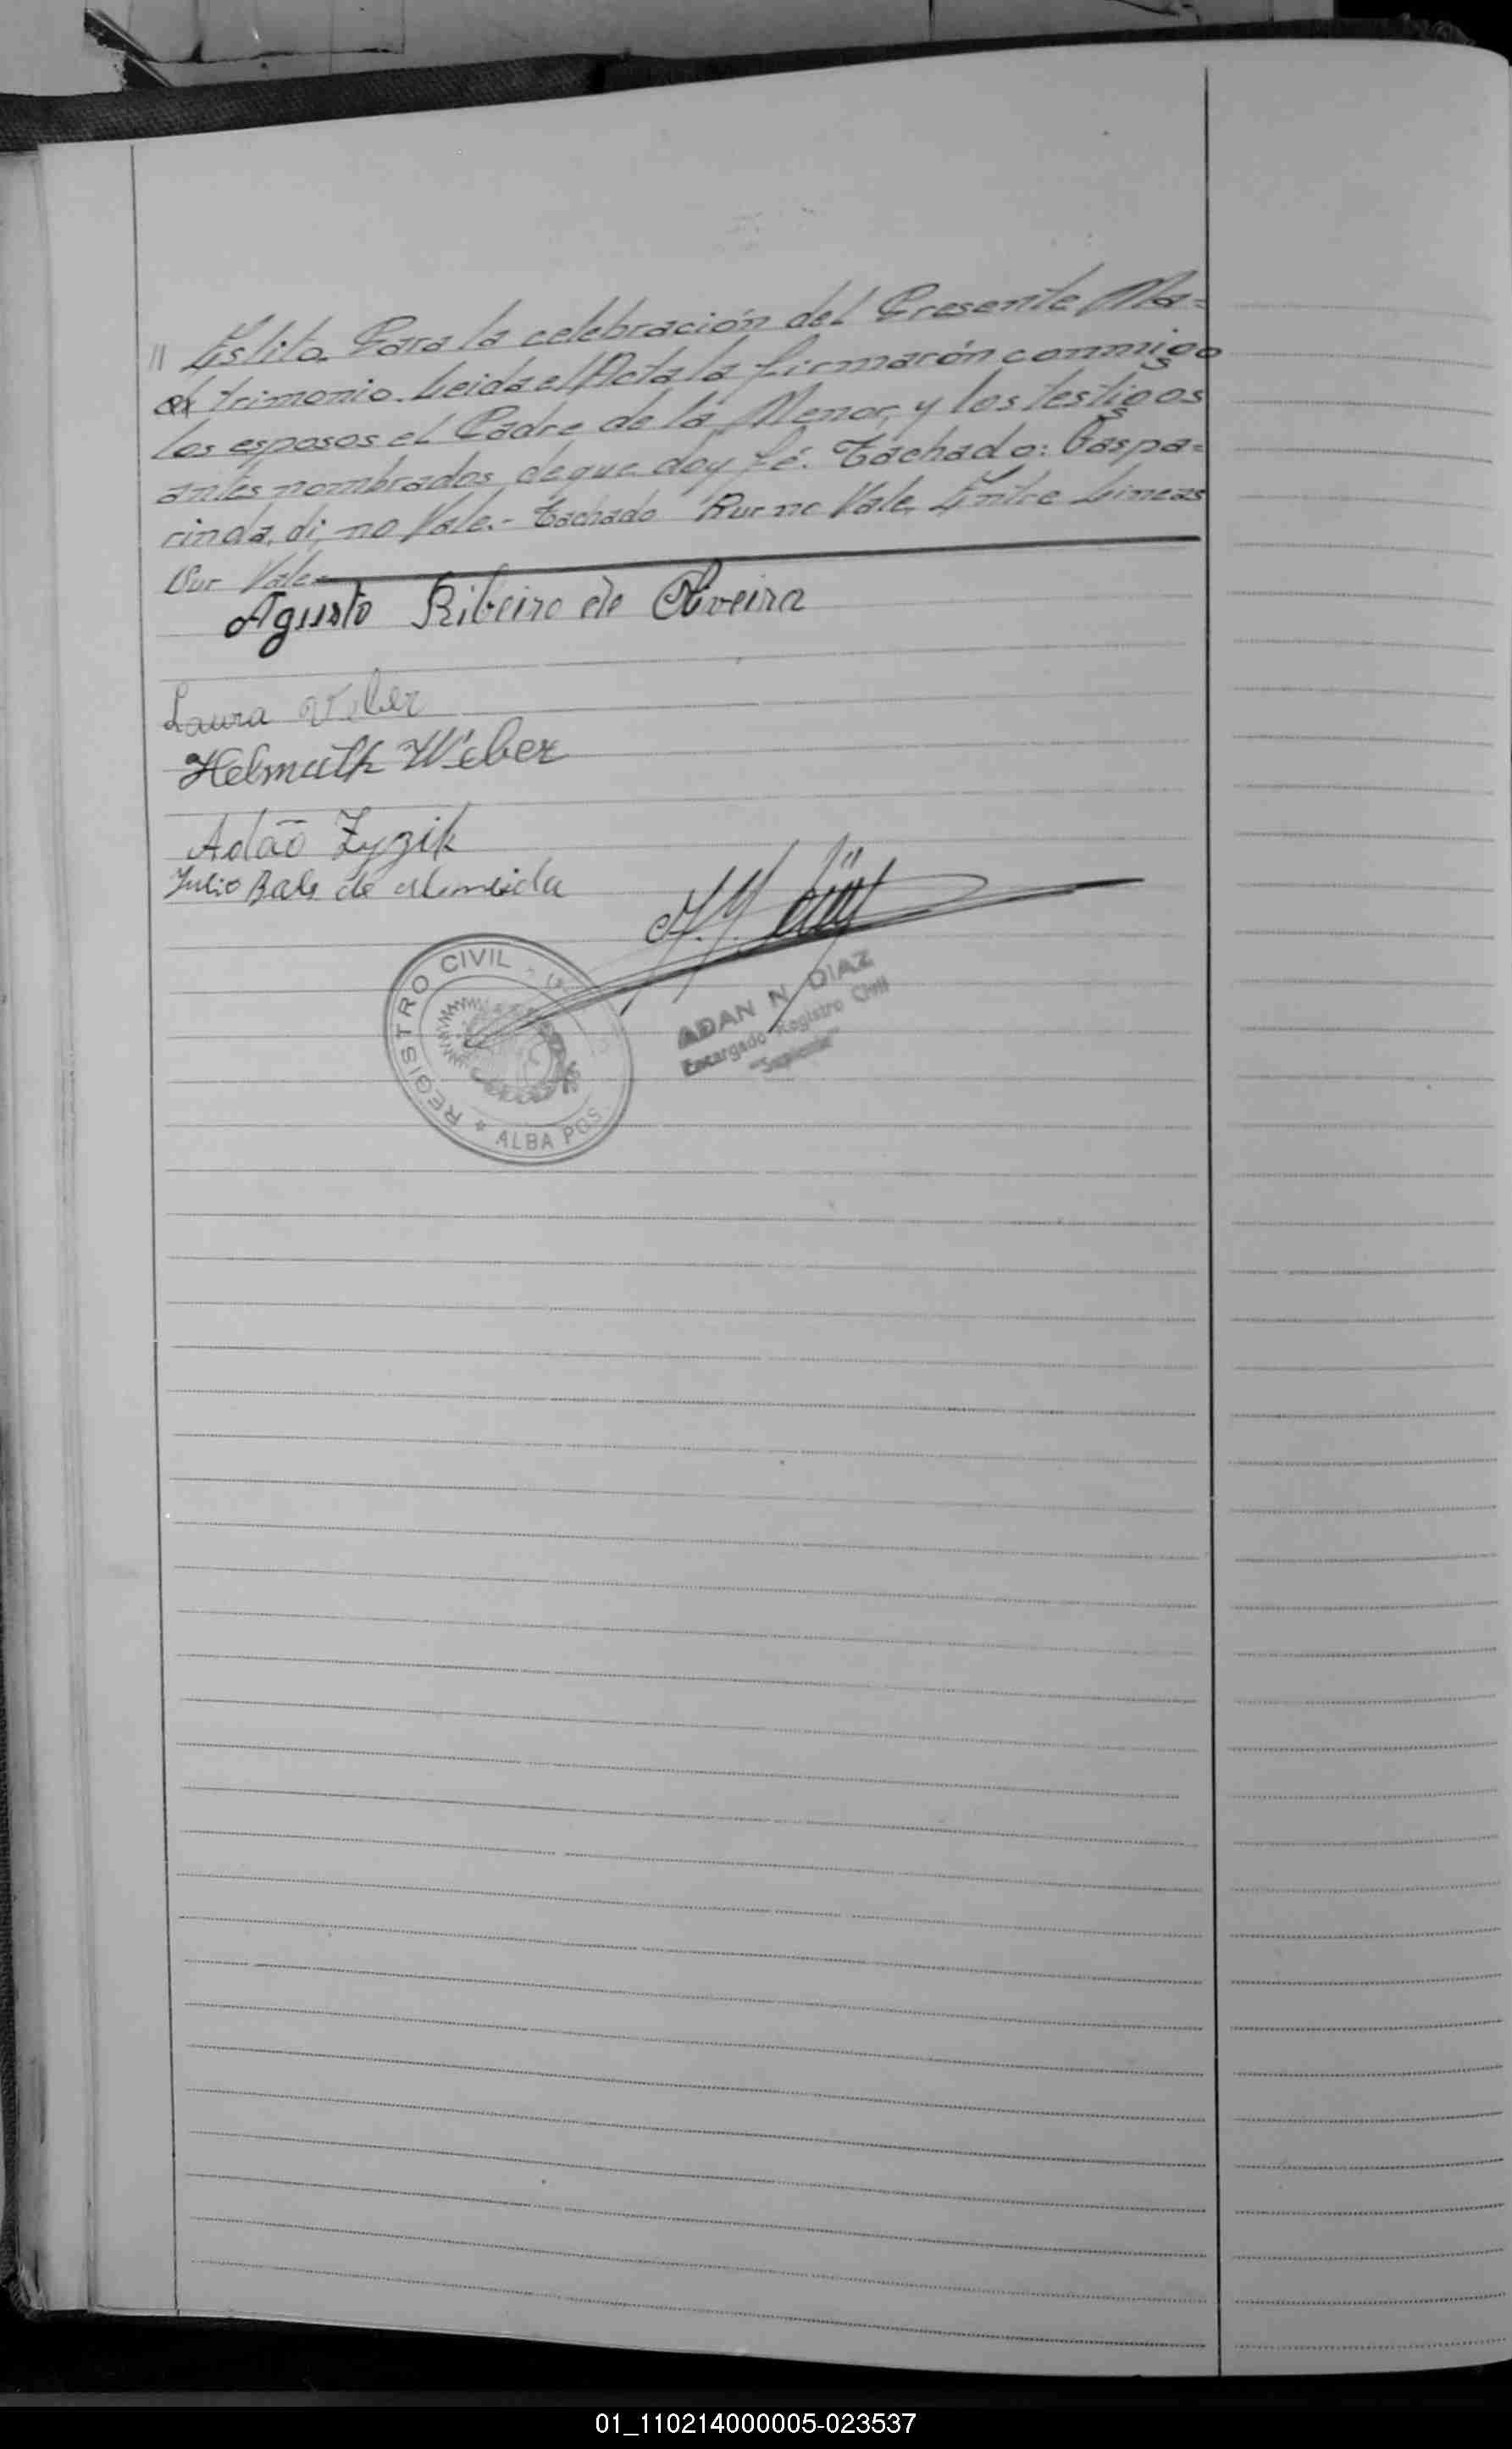 // Estilo. Para la celebración del Presente Ma=
trimonio. Leida el Acta la firmarón conmigo
los esposos el Padre de la Menor, y los testigos
antes nombrados de que doy fé. Tachado: Gaspa=
rinda, di, no Vale.- Tachado Rur no Vale, Entre Lineas
Vale
Agusto Ribeiro de Oliveira
Laura Veber
Helmuth Weber
Adão Zyzik
Julio de Almeida
REGISTRO CIVIL
* ALBA POS.
ADAN N. DIAZ
Encargado Registro Civil
01_110214000005-023537